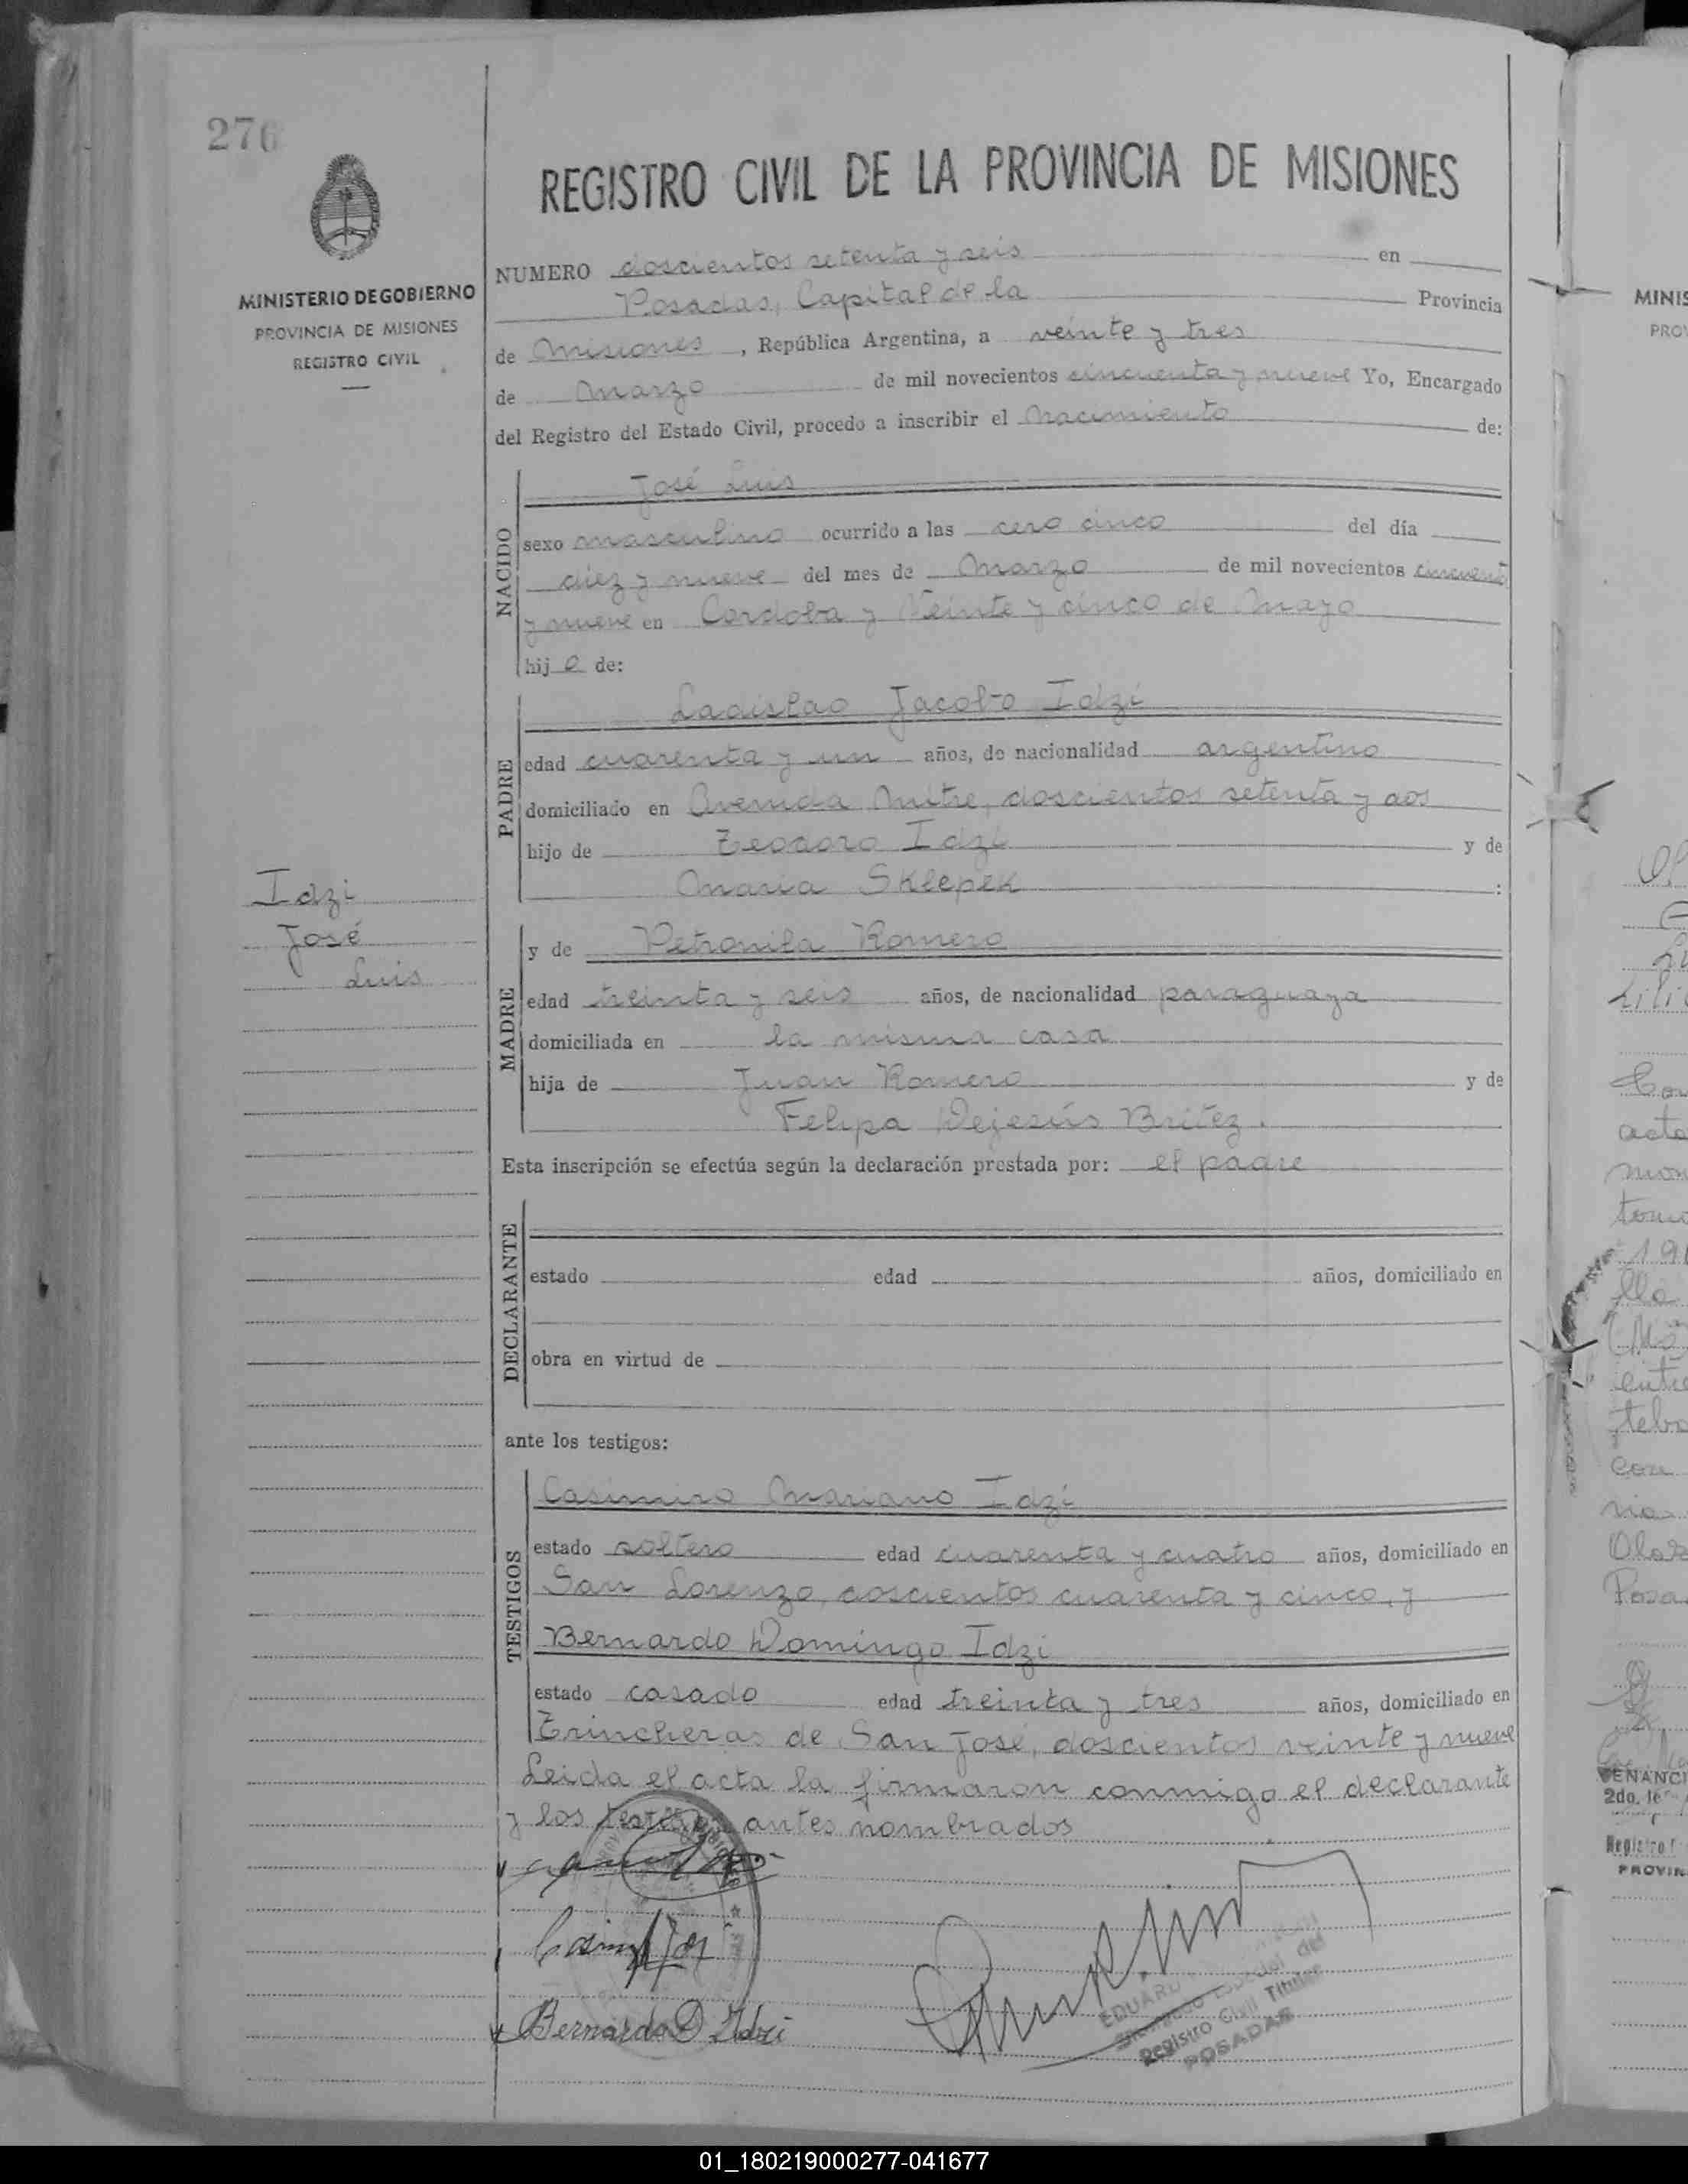 276
MINISTERIO DE GOBIERNO
PROVINCIA DE MISIONES
REGISTRO CIVIL
Idzi
José
Luis
REGISTRO CIVIL DE LA PROVINCIA DE MISIONES
NUMERO doscientos setenta y seis en
Posadas, Capital de la Provincia
de Misiones, República Argentina, a veinte y tres
de Marzo de mil novecientos cincuenta y nueve Yo, Encargado
del Registro del Estado Civil, procedo a inscribir el Nacimiento de:
NACIDO
José Luis
sexo masculino ocurrido a las cero cinco del día
diez y nueve del mes de Marzo de mil novecientos cincuenta
y nueve en Cordoba y Veinte y cinco de Mayo
hijo de:
PADRE
Ladislao Jacobo Idzi
edad cuarenta y un años, de nacionalidad argentino
domiciliado en Avenida Mitre, doscientos setenta y dos
hijo de Teodoro Idzi y de
Maria Sklepek :
MADRE
y de Petronila Romero
edad treinta y seis años, de nacionalidad paraguaya
domiciliada en la misma casa
hija de Juan Romero y de
Felipa Dejesús Britez.
Esta inscripción se efectúa según la declaración prestada por: el padre
DECLARANTE
estado edad años, domiciliado en
obra en virtud de
ante los testigos:
TESTIGOS
Casimiro Mariano Idzi
estado soltero edad cuarenta y cuatro años, domiciliado en
San Lorenzo, doscientos cuarenta y cinco, y
Bernardo Domingo Idzi
estado casado edad treinta y tres años, domiciliado en
Trincheras de San José, doscientos veinte y nueve
Leida el acta la firmaron conmigo el declarante
y los testigos antes nombrados
Bernardo D Idzi
EDUARDO
Registro Civil Titular
POSADAS
MINIS
PROV
acta
VENANCI
2do. Je
Registro
PROVIN
01_180219000277-041677